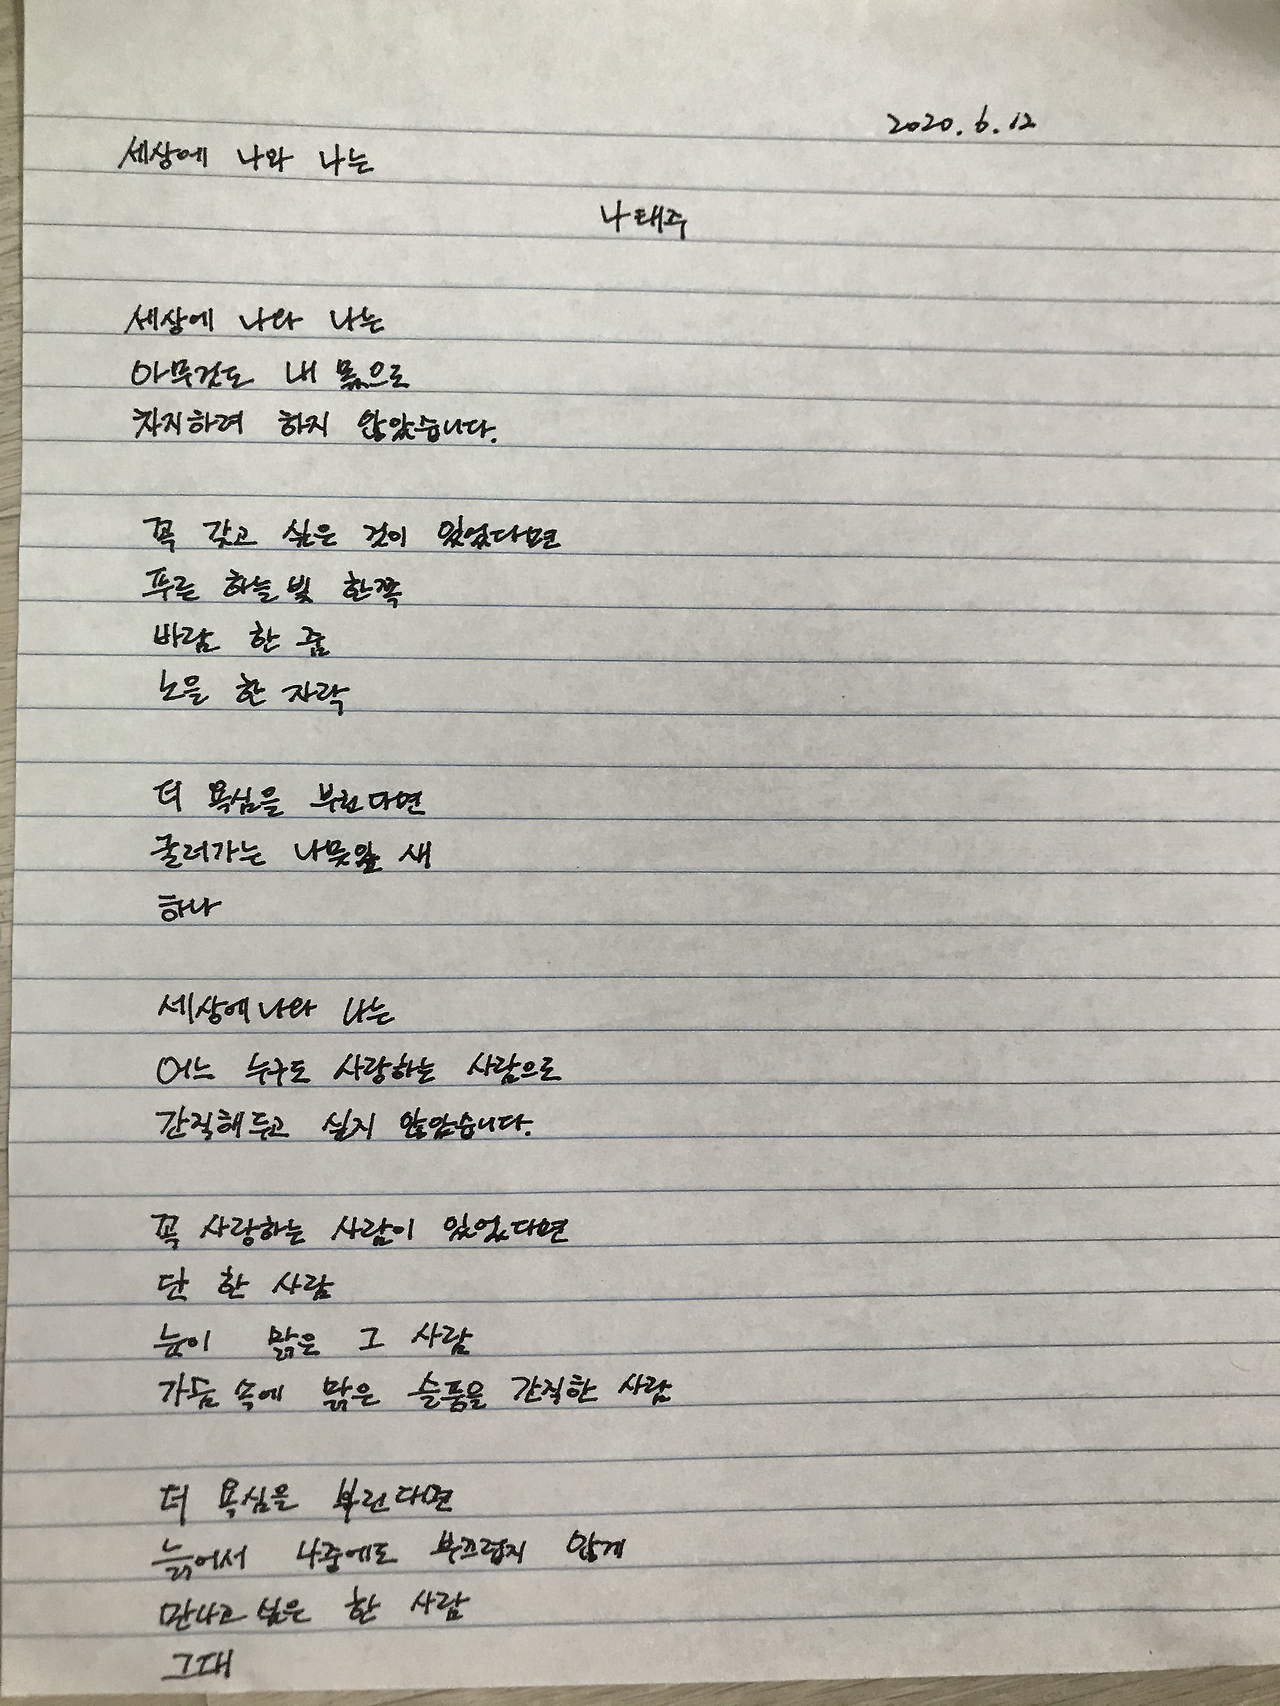 2020.6.12
세상에 나와 나는
나태주
세상에 나와 나는
아무것도 내 몫으로
차지하려 하지 않았습니다.
꼭 갖고 싶은 것이 있었다면
푸른 하늘빛 한쪽
바람 한 줌
노을 한 자락
더 욕심을 부린다면
굴러가는 나뭇잎 새
하나
세상에 나와 나는
어느 누구도 사랑하는 사람으로
간직해두고 싶지 않았습니다.
꼭 사랑하는 사람이 있었다면
단 한 사람
눈이 맑은 그 사람
가슴 속에 맑은 슬픔을 간직한 사람
더 욕심을 부린다면
늙어서 나중에도 부끄럽지 않게
만나고 싶은 한 사람
그대